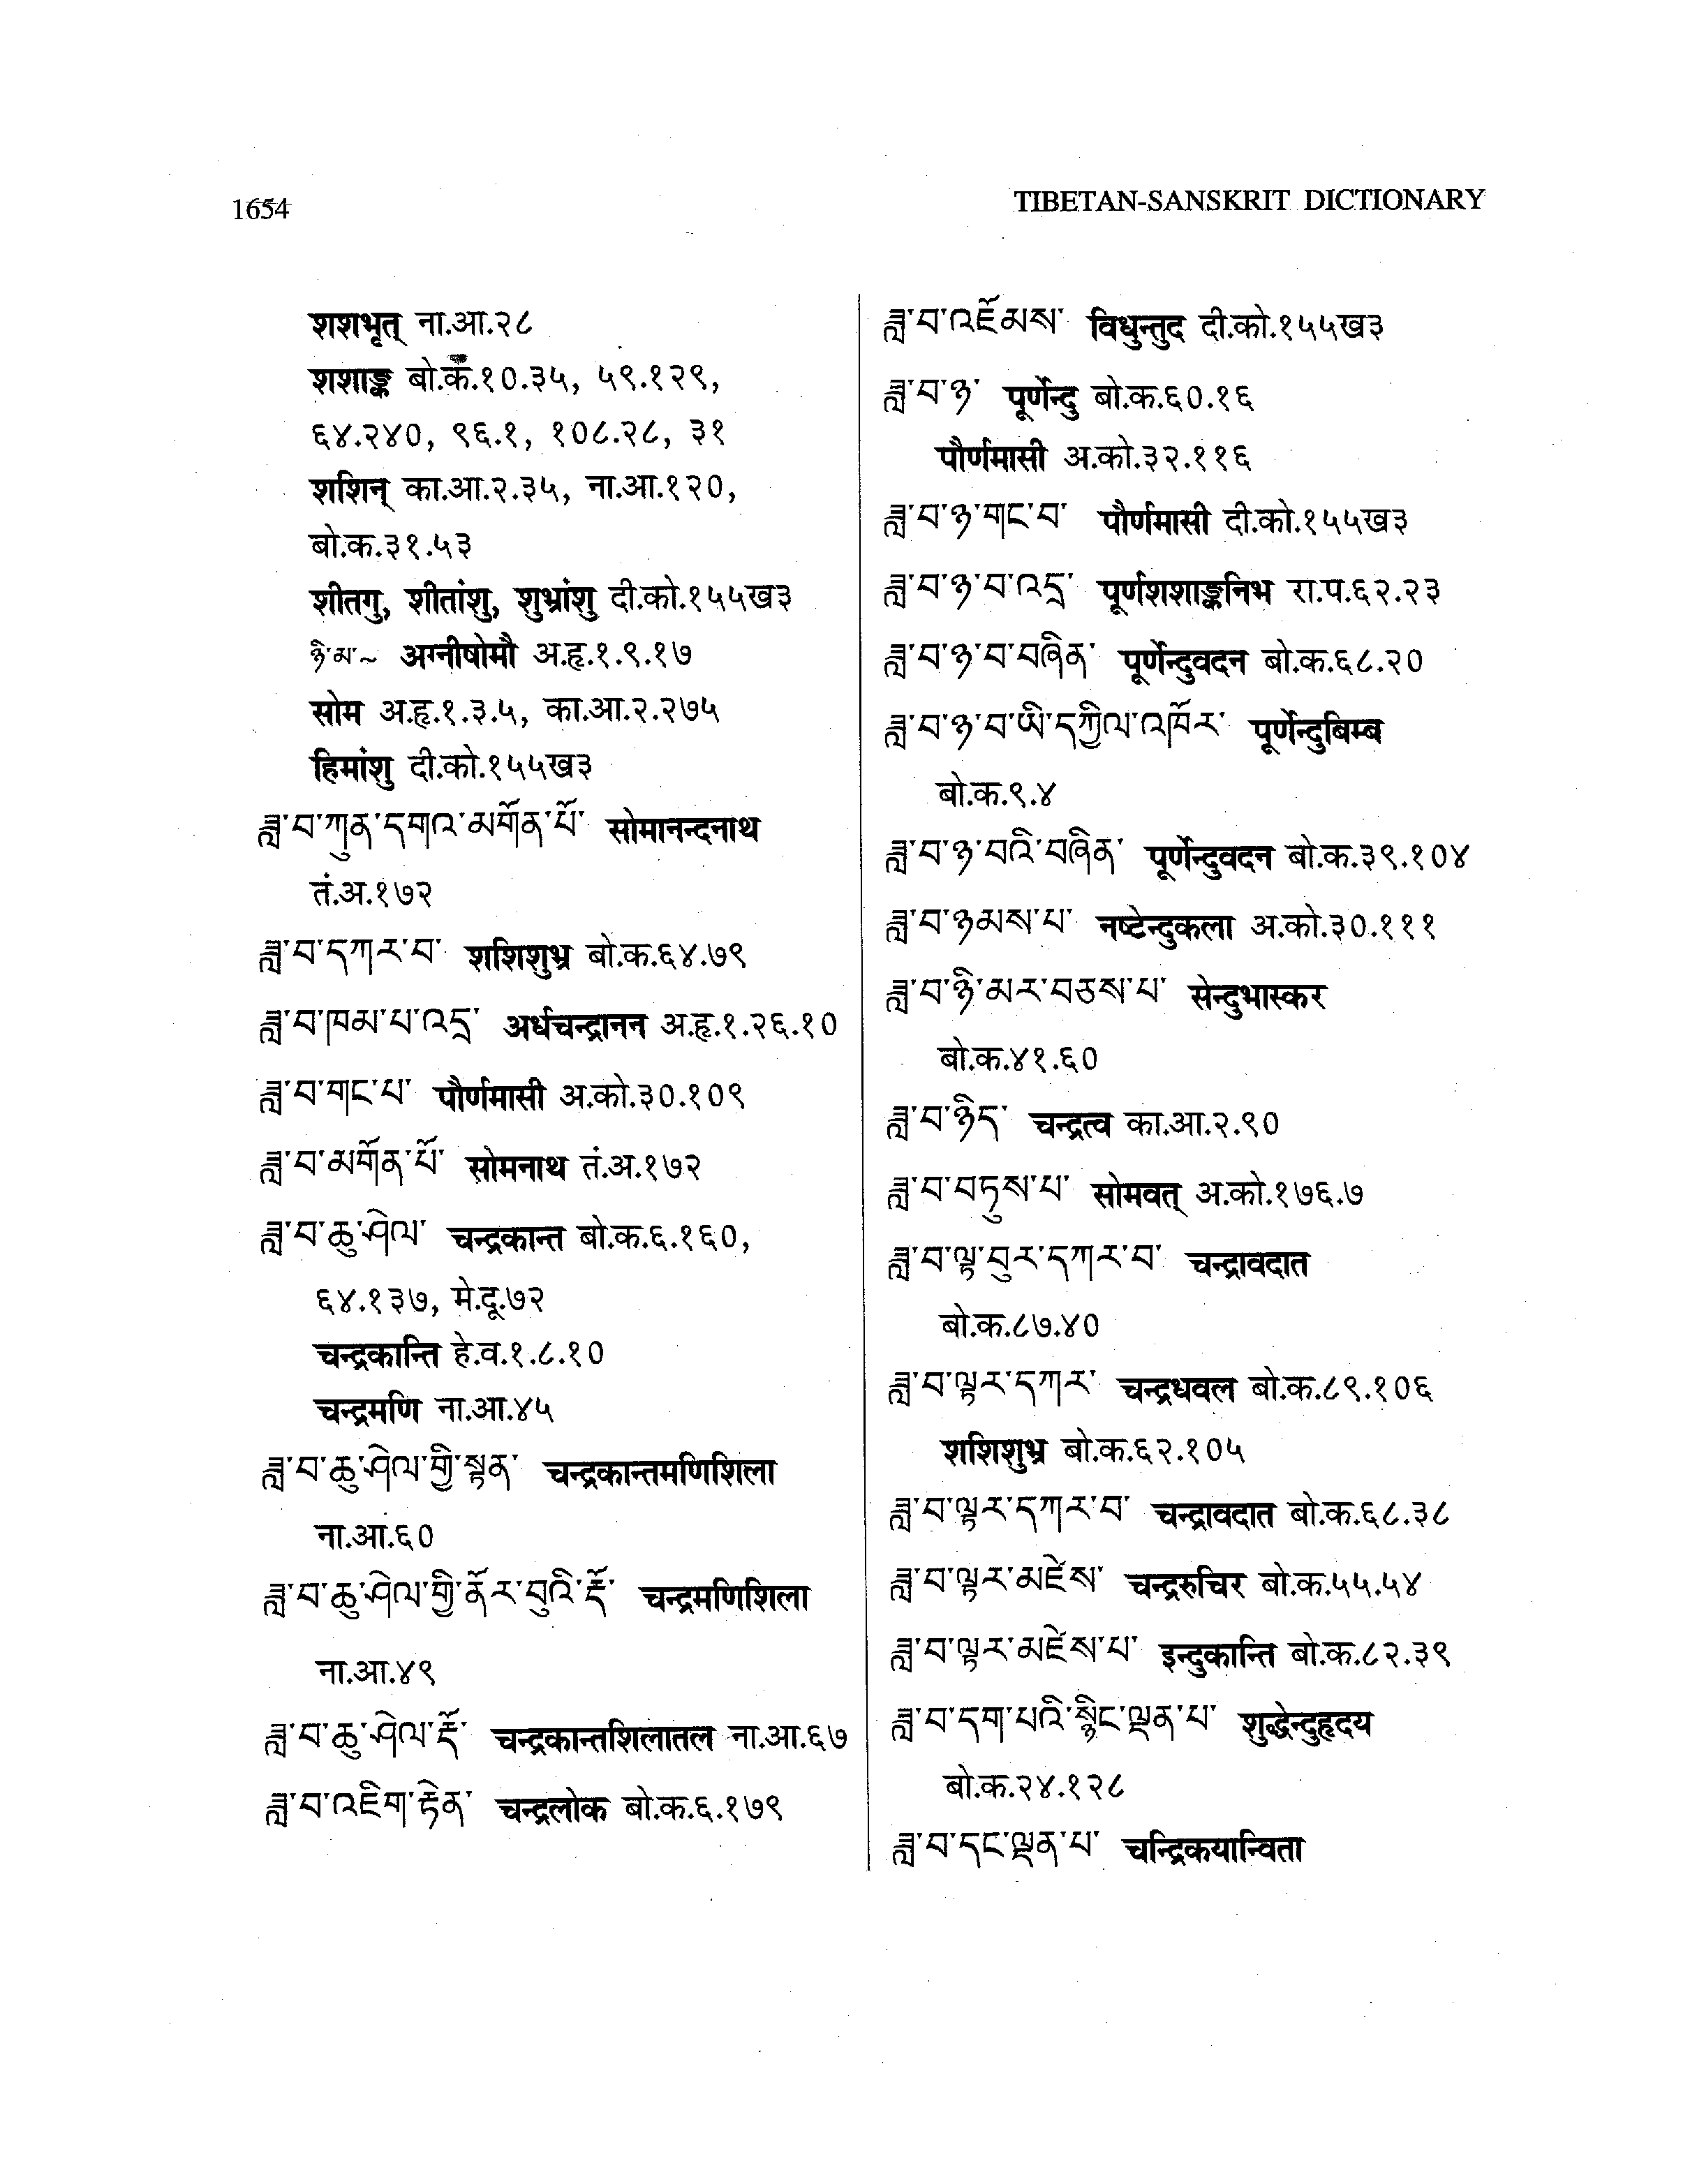 1654
TIBETAN-SANSKRIT DICTIONARY
शशभृत् ना.आ.२८
शशाङ्क बो.क.१०.३५, ५९.१२९,
६४.२४०, ९६.१, १०८.२८, ३१
शशिन् का.आ.२.३५, ना.आ.१२०,
बो.क.३१.५३
शीतगु, शीतांशु, शुभ्रांशु दी.को.१५५ख३
ཉི་མ་~ अग्नीषोमौ अ.हृ.१.९.१७
सोम अ.हृ.१.३.५, का.आ.२.२७५
हिमांशु दी.को.१५५ख३
ཟླ་བ་ཀུན་དགའ་མགོན་པོ་ सोमानन्दनाथ
तं.अ.१७२
ཟླ་བ་དཀར་བ་ शशिशुभ्र बो.क.६४.७९
ཟླ་བ་ཁམ་པ་འདྲ་ अर्धचन्द्रानन अ.हृ.१.२६.१०
ཟླ་བ་གང་པ་ पौर्णमासी अ.को.३०.१०९
ཟླ་བ་མགོན་པོ་ सोमनाथ तं.अ.१७२
ཟླ་བ་ཆུ་ཤེལ་ चन्द्रकान्त बो.क.६.१६०,
६४.१३७, मे.दू.७२
चन्द्रकान्ति हे.व.१.८.१०
चन्द्रमणि ना.आ.४५
ཟླ་བ་ཆུ་ཤེལ་གྱི་སྟན་ चन्द्रकान्तमणिशिला
ना.आ.६०
ཟླ་བ་ཆུ་ཤེལ་གྱི་ནོར་བུའི་རྡོ་ चन्द्रमणिशिला
ना.आ.४९
ཟླ་བ་ཆུ་ཤེལ་རྡོ་ चन्द्रकान्तशिलातल ना.आ.६७
ཟླ་བ་འཇིག་རྟེན་ चन्द्रलोक बो.क.६.१७९
ཟླ་བ་འཇོམས་ विधुन्तुद दी.को.१५५ख३
ཟླ་བ་ཉ་ पूर्णेन्दु बो.क.६०.१६
पौर्णमासी अ.को.३२.११६
ཟླ་བ་ཉ་གང་བ་ पौर्णमासी दी.को.१५५ख३
ཟླ་བ་ཉ་བ་འདྲ་ पूर्णशशाङ्कनिभ रा.प.६२.२३
ཟླ་བ་ཉ་བ་བཞིན་ पूर्णेन्दुवदन बो.क.६८.२०
ཟླ་བ་ཉ་བ་ཡི་དཀྱིལ་འཁོར་ पूर्णेन्दुबिम्ब
बो.क.९.४
ཟླ་བ་ཉ་བའི་བཞིན་ पूर्णेन्दुवदन बो.क.३९.१०४
ཟླ་བ་ཉམས་པ་ नष्टेन्दुकला अ.को.३०.१११
ཟླ་བ་ཉི་མར་བཅས་པ་ सेन्दुभास्कर
बो.क.४१.६०
ཟླ་བ་ཉིད་ चन्द्रत्व का.आ.२.९०
ཟླ་བ་བཏུས་པ་ सोमवत् अ.को.१७६.७
ཟླ་བ་ལྟ་བུར་དཀར་བ་ चन्द्रावदात
बो.क.८७.४०
ཟླ་བ་ལྟར་དཀར་ चन्द्रधवल बो.क.८९.१०६
शशिशुभ्र बो.क.६२.१०५
ཟླ་བ་ལྟར་དཀར་བ་ चन्द्रावदात बो.क.६८.३८
ཟླ་བ་ལྟར་མཛེས་ चन्द्ररुचिर बो.क.५५.५४
ཟླ་བ་ལྟར་མཛེས་པ་ इन्दुकान्ति बो.क.८२.३९
ཟླ་བ་དག་པའི་སྙིང་ལྡན་པ་ शुद्धेन्दुहृदय
बो.क.२४.१२८
ཟླ་བ་དང་ལྡན་པ་ चन्द्रिकयान्विता